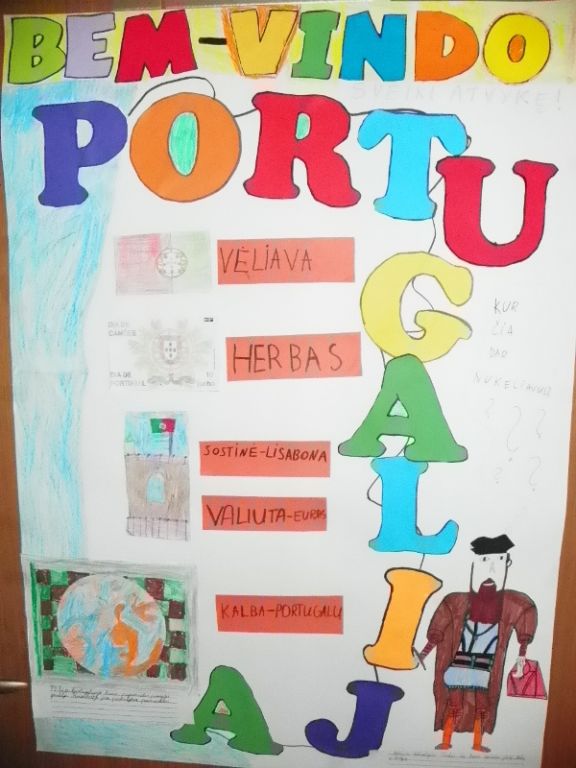 BEM-VINDO
SVEIKI ATVYKĘ!
PORTUGALIJA
VĖLIAVA
DIA DE CAMÕES
DIA DE PORTUGAL
10
HERBAS
KUR
ČIA
DAR
NUKELIAVUS
? ? ? ? ?
SOSTINĖ-LISABONA
VALIUTA-EURAS
KALBA-PORTUGALŲ